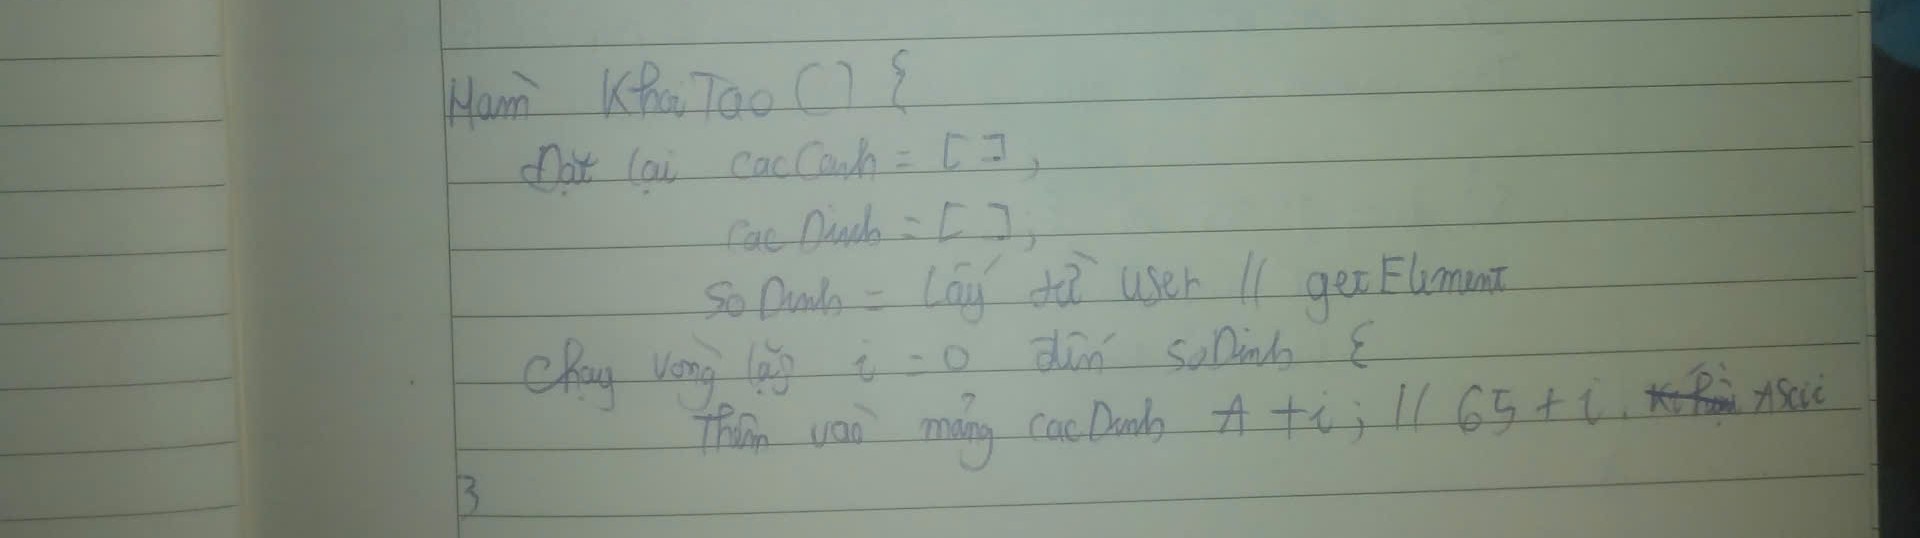 Hàm KhoiTao () {
Đặt lại cacCanh = [ ],
cacDinh = [ ],
soDinh = lấy từ user // getElement
chạy vòng lặp i = 0 đến soDinh {
Thêm vào mảng cacDinh A + i; // 65 + i. Ascii
}